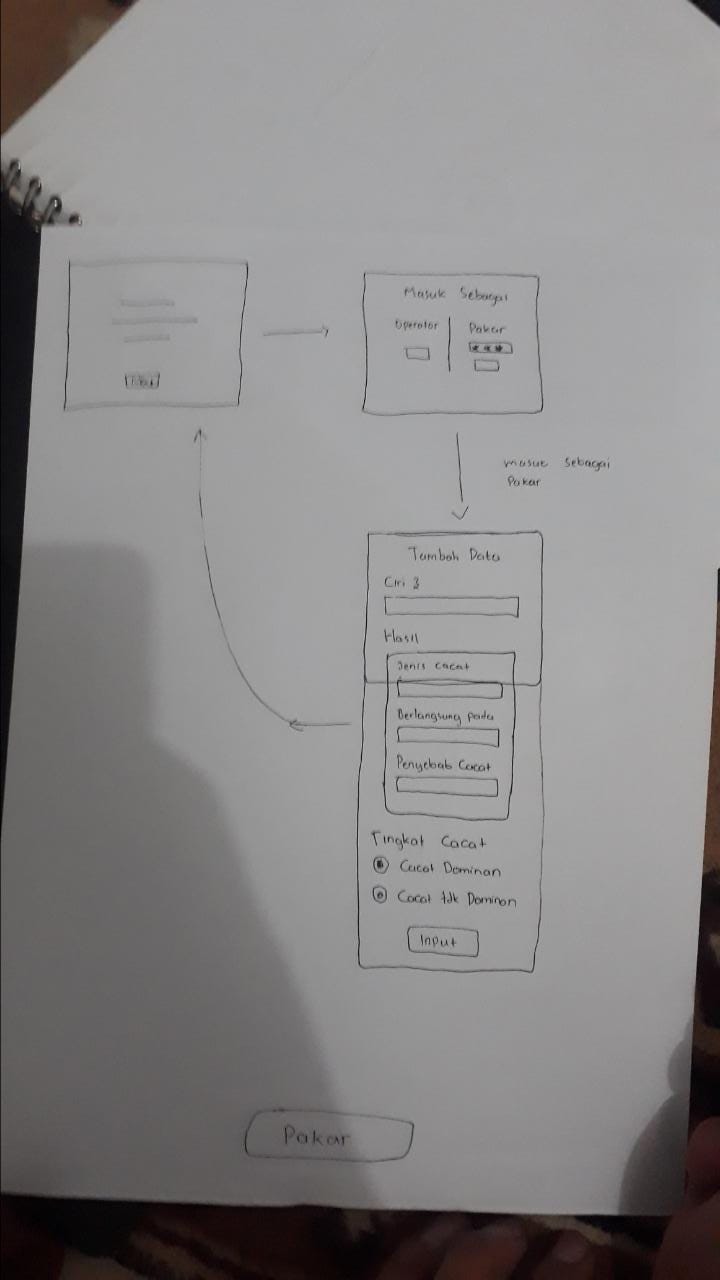 Masuk Sebagai
Operator
Pakar
***
masuk sebagai
Pakar
Tambah Data
Ciri 2
Hasil
Jenis cacat
Berlangsung pada
Penyebab Cacat
Tingkat Cacat
Cacat Dominan
Cacat tdk Dominan
Input
Pakar